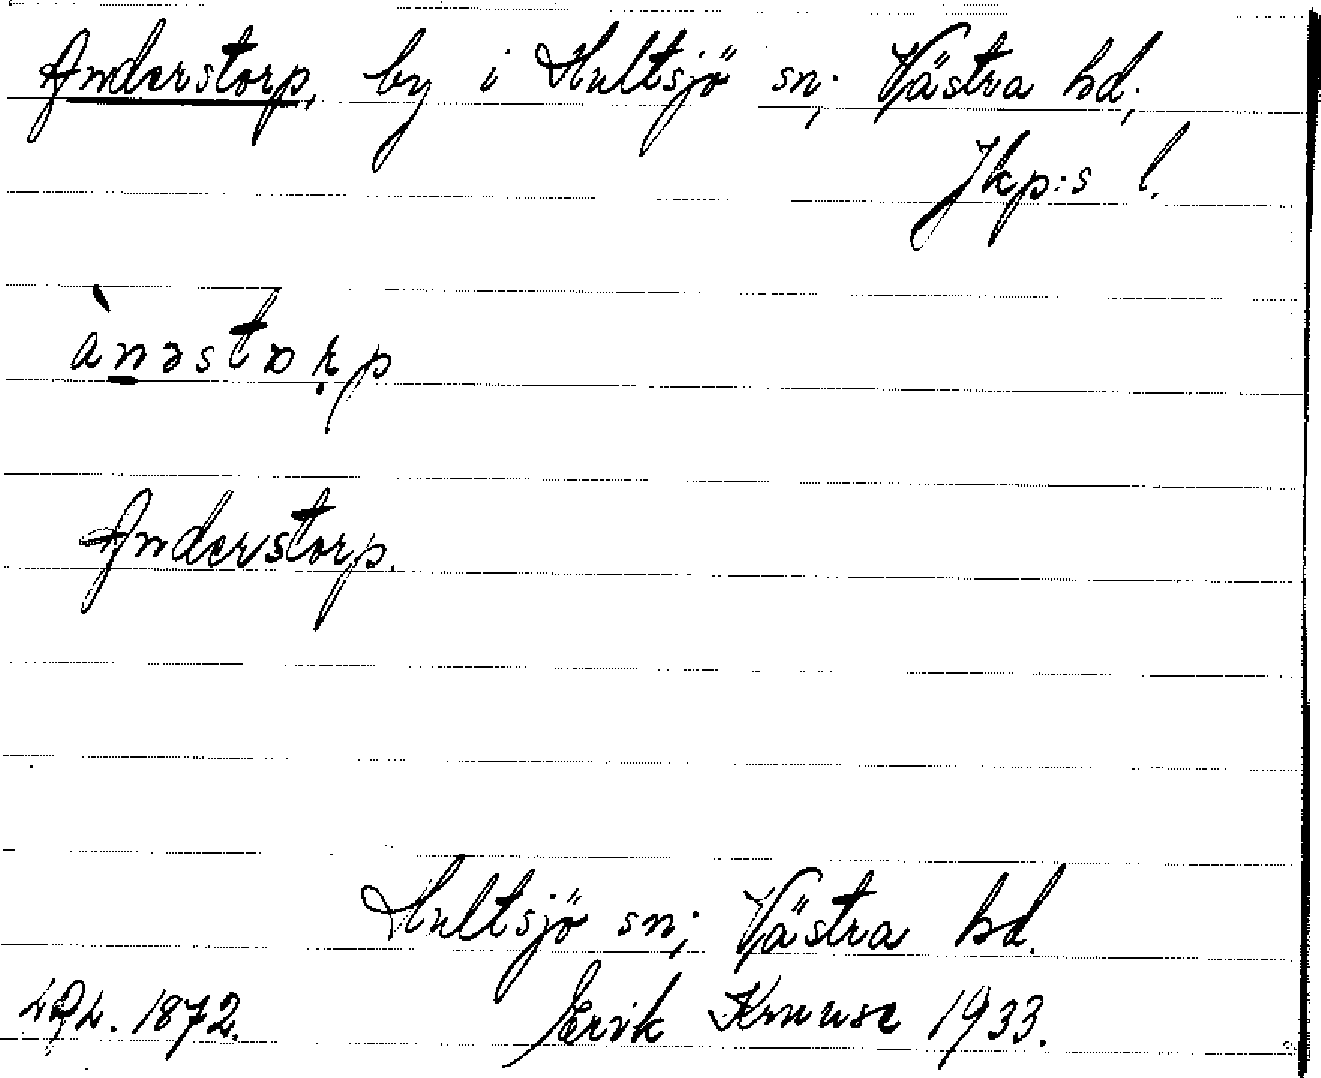 Anderstorp, by i Hultsjö sn; Västra hd;
Jkp:s l.
ànəstꭢrp
Anderstorp.
Hultsjö sn; Västra hd.
1872. Erik Knuuse 1933.